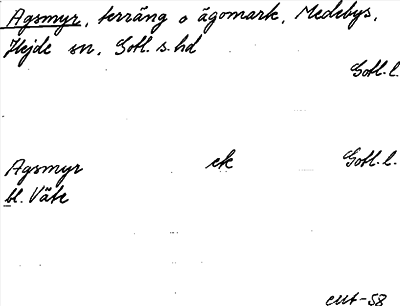 Agsmyr, terräng o ägomark, Medebys,
Hejde sn, Gotl. s. hd
Gotl. l.
Agsmyr ek Gotl. l.
bl. Väte
CMt-58